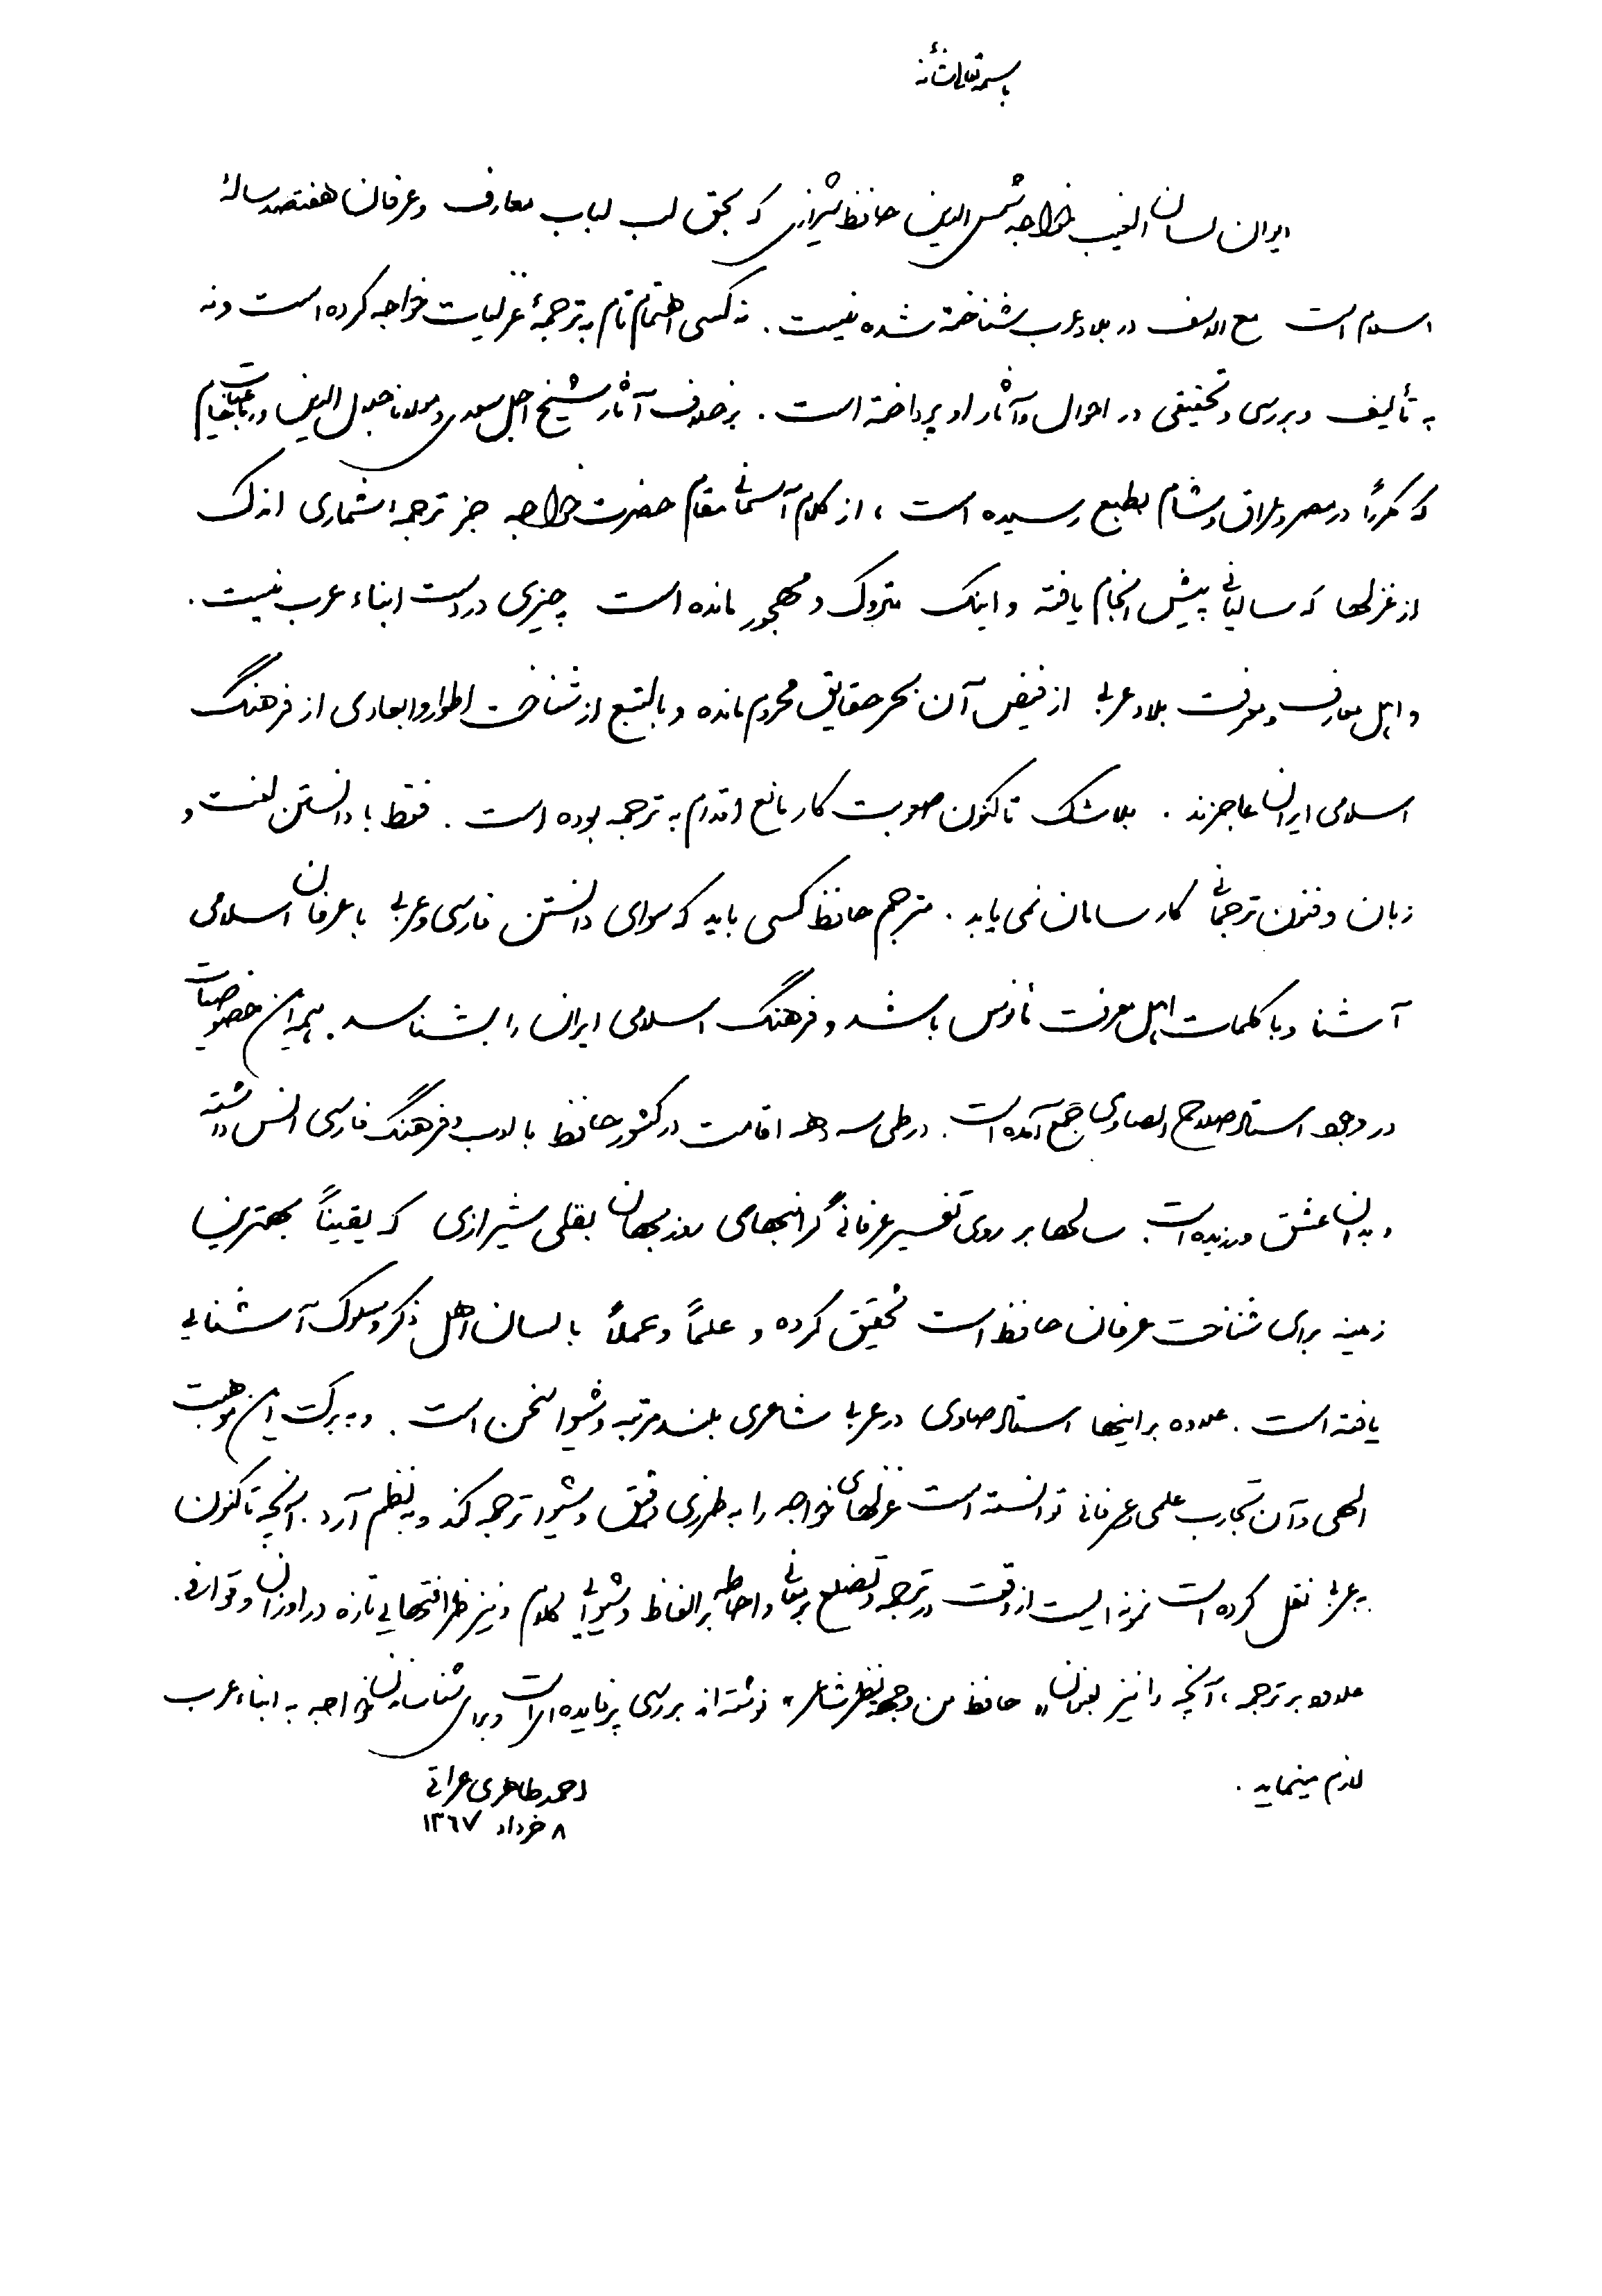 باسمه تعالی شأنه
دیوان لسان الغیب خواجه شمس الدین حافظ شیرازی که بحق لب لباب معارف و عرفان هفتصد سالهٔ
اسلام است مع الاسف در بلاد عرب شناخته شده نیست . نه کسی اهتمام تام به ترجمهٔ غزلیات خواجه کرده است و نه
به تألیف و بررسی و تحقیقی در احوال و آثار او پرداخته است . برخلاف آثار شیخ اجل سعدی و مولانا جلال الدین و رباعیات خیام
که مکرراً در مصر و عراق و شام بطبع رسیده است ، از کلام آسمانی مقام حضرت خواجه جز ترجمهٔ شماری اندک
از غزلها که سالیانی پیش انجام یافته و اینک متروک و مهجور مانده است چیزی در دست ابناء عرب نیست .
و اهل معارف و معرفت بلاد عربی از فیض آن بحر حقایق محروم مانده و بالتبع از شناخت اطوار و ابعادی از فرهنگ
اسلامی ایران عاجزند . بلاشک تاکنون صعوبت کار مانع اقدام به ترجمه بوده است . فقط با دانستن لغت و
زبان و فنون ترجمانی کار سامان نمی یابد . مترجم حافظ کسی باید که سوای دانستن فارسی و عربی با عرفان اسلامی
آشنا و با کلمات اهل معرفت مأنوس باشد و فرهنگ اسلامی ایران را بشناسد . همهٔ این خصوصیات
در وجود استاد صلاح الصاوی جمع آمده است . در طی سه دهه اقامت در کشور حافظ با ادب و فرهنگ فارسی انس داشته
و بدان عشق ورزیده است . سالها بر روی تفسیر عرفانی گرانبهای روزبهان بقلی شیرازی که یقیناً بهترین
زمینه برای شناخت عرفان حافظ است تحقیق کرده و علماً و عملاً با لسان اهل ذکر و سلوک آشنایی
یافته است . علاوه بر اینها استاد صاوی در عربی شاعری بلند مرتبه و شیوا سخن است . و به برکت این موهبت
الهی و آن تجارب علمی و عرفانی توانسته است غزلهای خواجه را به طرزی دقیق و شیوا ترجمه کند و به نظم آرد . آنچه تاکنون
به عربی نقل کرده است نمونه ایست از دقت در ترجمه و تضلع بر معانی و احاطه بر الفاظ و شیوایی کلام و نیز ظرافتهایی تازه در اوزان و قوافی .
علاوه بر ترجمه ، آنچه را نیز بعنوان « حافظ من وجهة نظر شاعر » نوشته اند بررسی پرفایده ای است و برای شناساندن خواجه به ابناء عرب
لازم مینماید .
احمد طاهری عراقی
۸ خرداد ۱۳٦۷